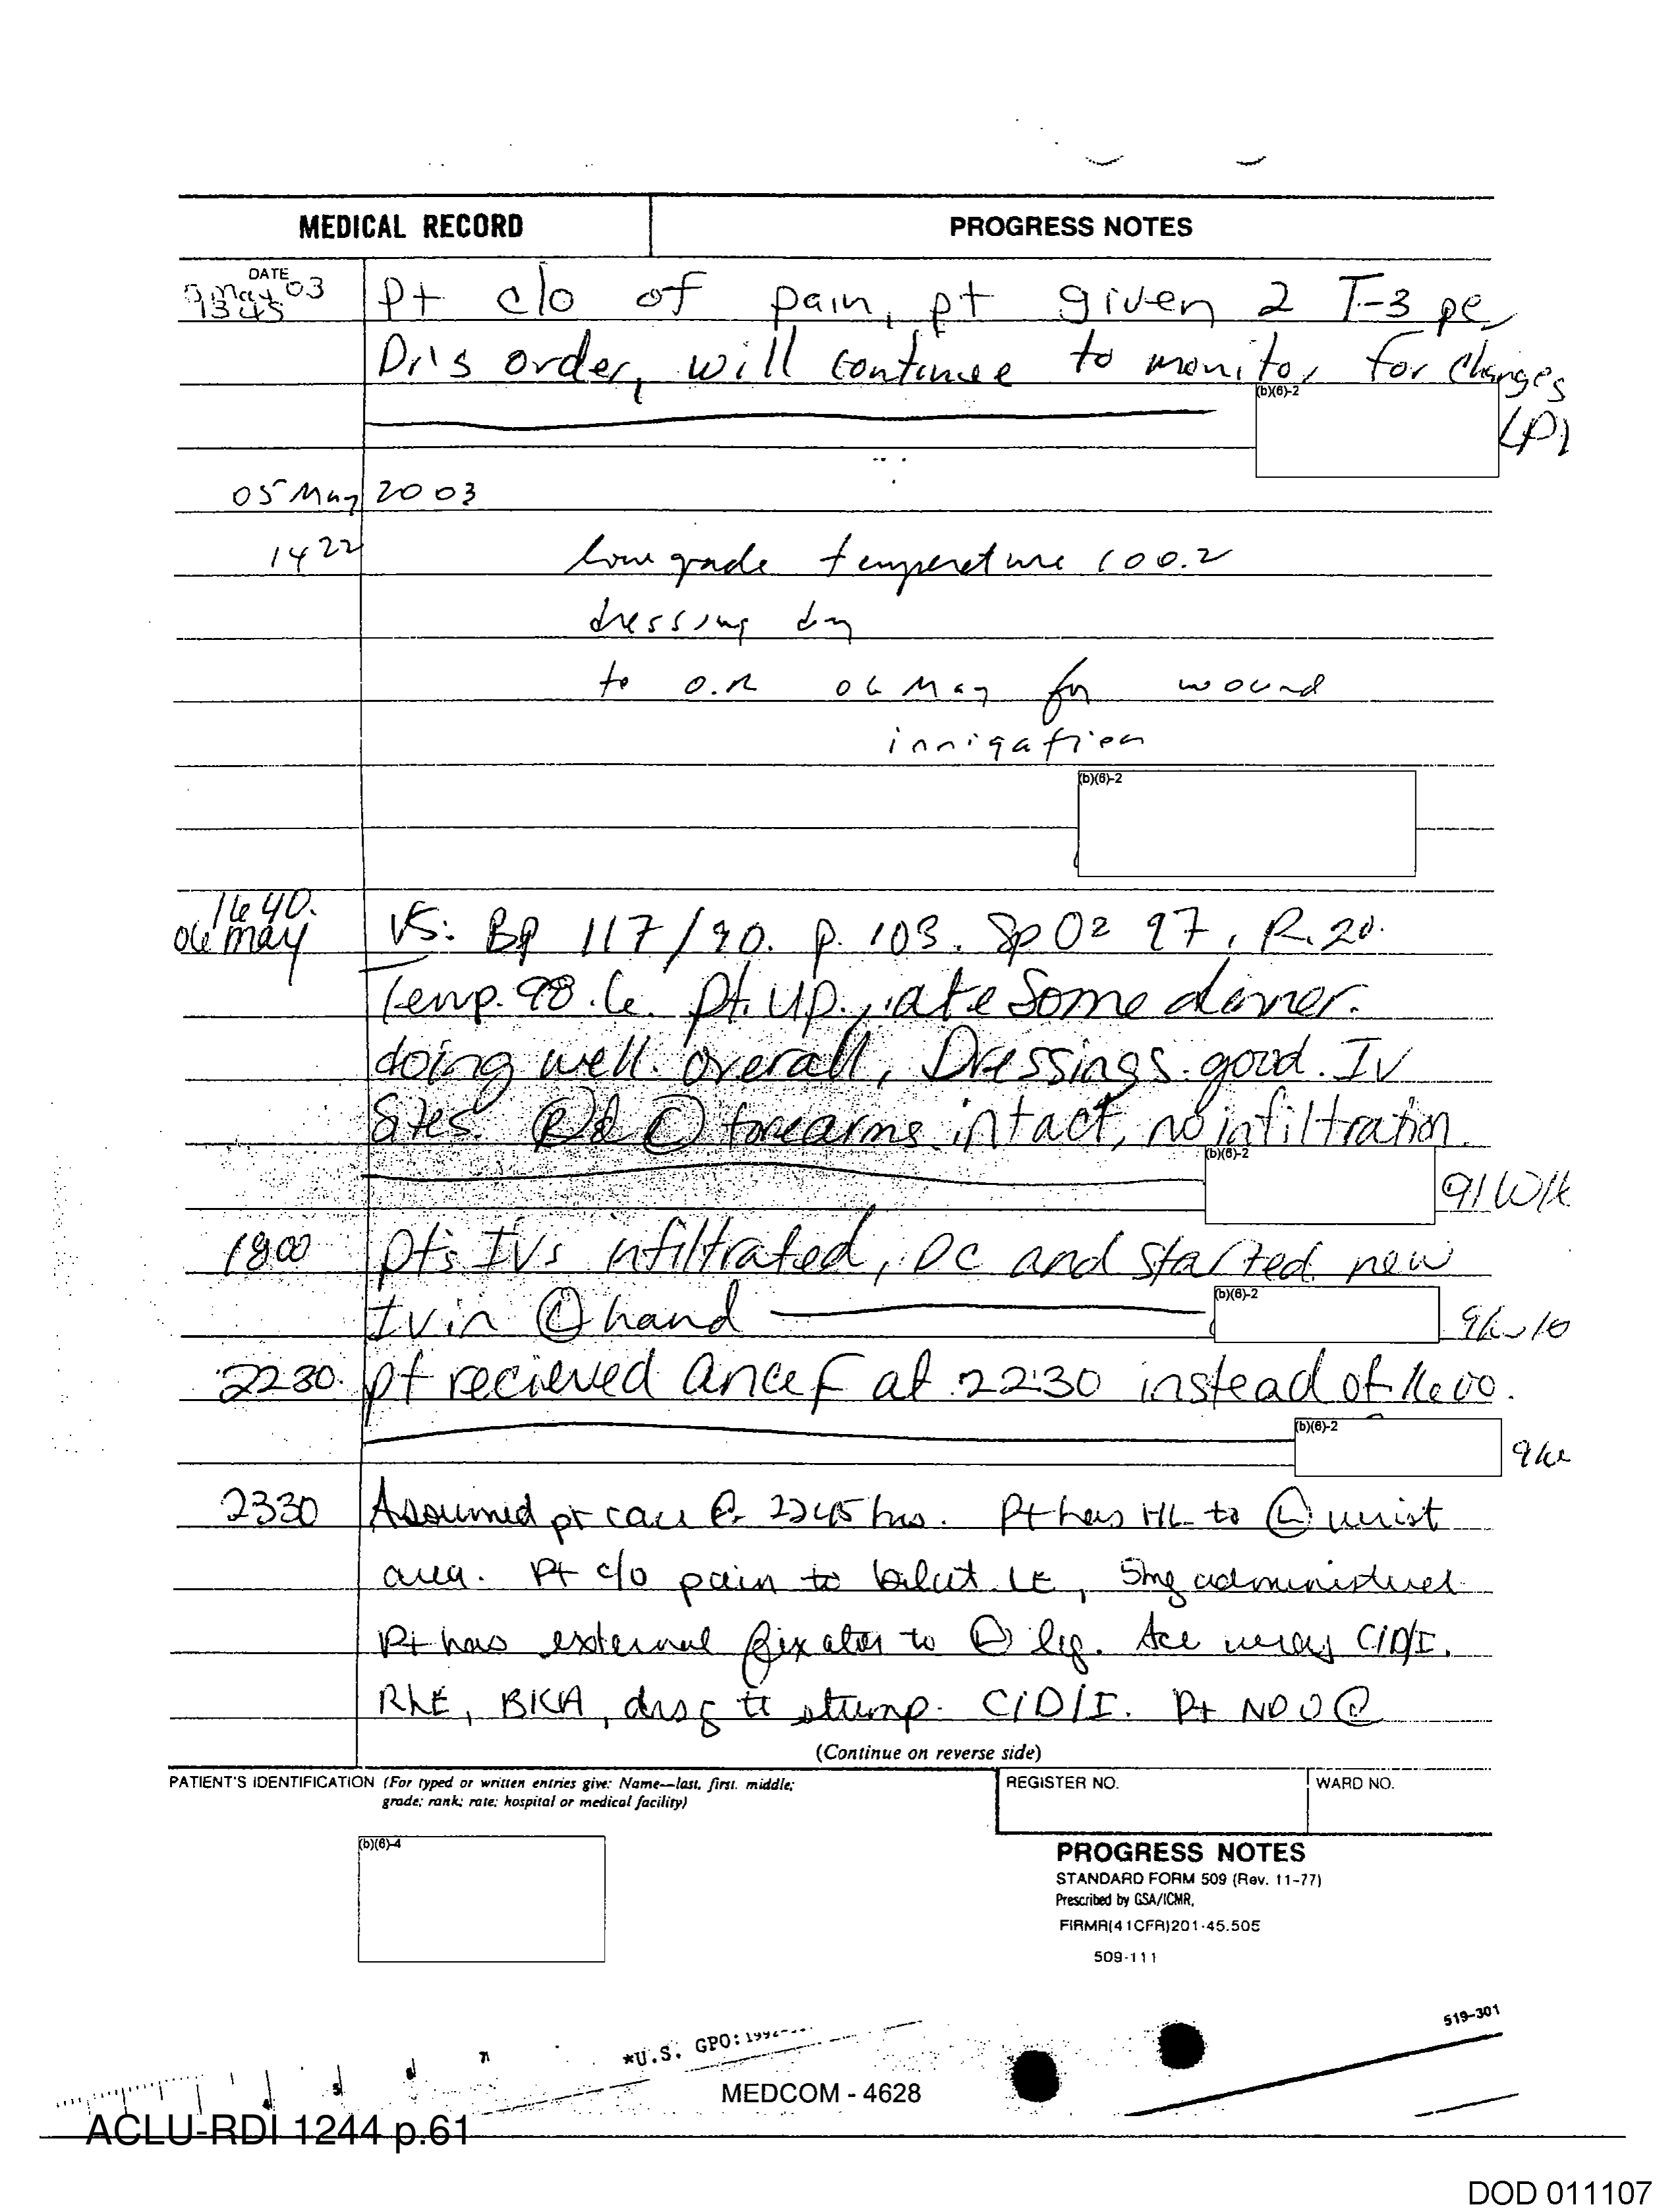 MEDICAL RECORD
PROGRESS NOTES
DATE
May 03
1345
Pt c/o of pain, pt given 2 T-3 pe
Dr's order, will continue to monitor for changes
(b)(6)-2
05 May 2003
1422
low grade temperature 100.2
dressing dry
to O.R 06 May for wound
irrigation
(b)(6)-2
1640.
06 may
VS: BP 117/90. P. 103. SpO2 97, R. 20.
Temp. 98.6. pt. up, ate some dinner.
doing well overall, Dressings good. IV
Sites. (R) & (L) forearms intact, no infiltration.
(b)(6)-2
91W1
1800
pt's IVs infiltrated, DC and started new
IV in (L) hand
(b)(6)-2
2230.
pt recieved ancef at 2230 instead of 1600.
(b)(6)-2
2330
Assumed pt care @ 2245 hrs. Pt has HL to (L) wrist
area. Pt c/o pain to bilat LE, 5mg administered
Pt has external fixator to (L) leg. Ace wrap C/D/I.
RLE, BKA, drsg to stump. C/D/I. Pt
(Continue on reverse side)
PATIENT'S IDENTIFICATION (For typed or written entries give: Name—last, first, middle;
grade; rank; rate; hospital or medical facility)
REGISTER NO.
WARD NO.
(b)(6)-4
PROGRESS NOTES
STANDARD FORM 509 (Rev. 11-77)
Prescribed by GSA/ICMR,
FIRMR(41CFR)201-45.505
509-111
519-301
*U.S. GPO:
MEDCOM - 4628
ACLU-RDI 1244 p.61
DOD 011107